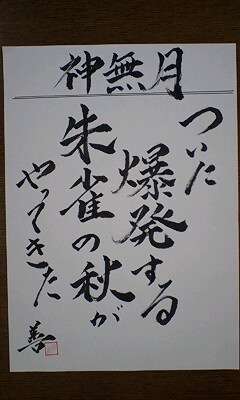 神無月
ついに
爆発する
朱雀の秋が
やってきた
善